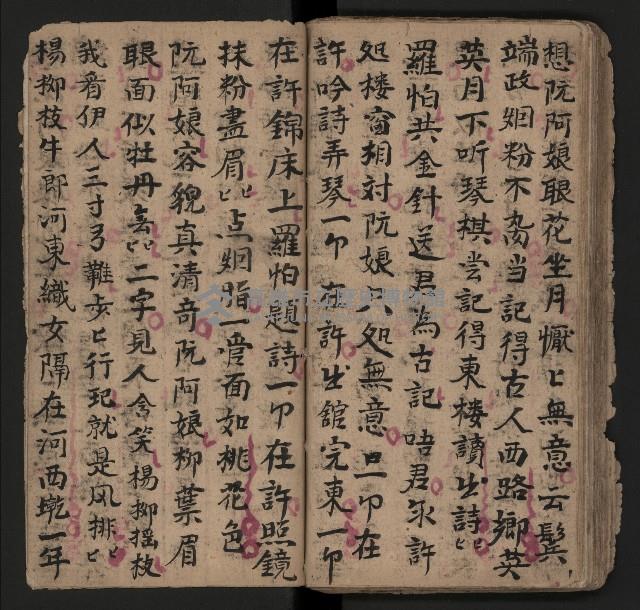 想阮阿娘眼花坐月懨匕無意云鬓
端政烟粉不為当記得古人西路鄉英
英月下听琴棋当記得東楼讀出詩匕
羅怕共金針送君為古記唔君永許
処楼窗相对阮娘只処無意口一卬在
許吟詩弄琴一卬在許出舘完東一卬
在許錦床上羅怕題詩一卬在許照鏡
抹粉畫眉匕匕点烟脂一面如桃花色
阮阿娘容貌真清奇阮阿娘柳葉眉
眼面似牡丹二字見人含笑楊柳揺枝
我看伊人三寸弓難步匕行現就是风排匕
楊柳枝牛郎河東織女隔在河西墘一年